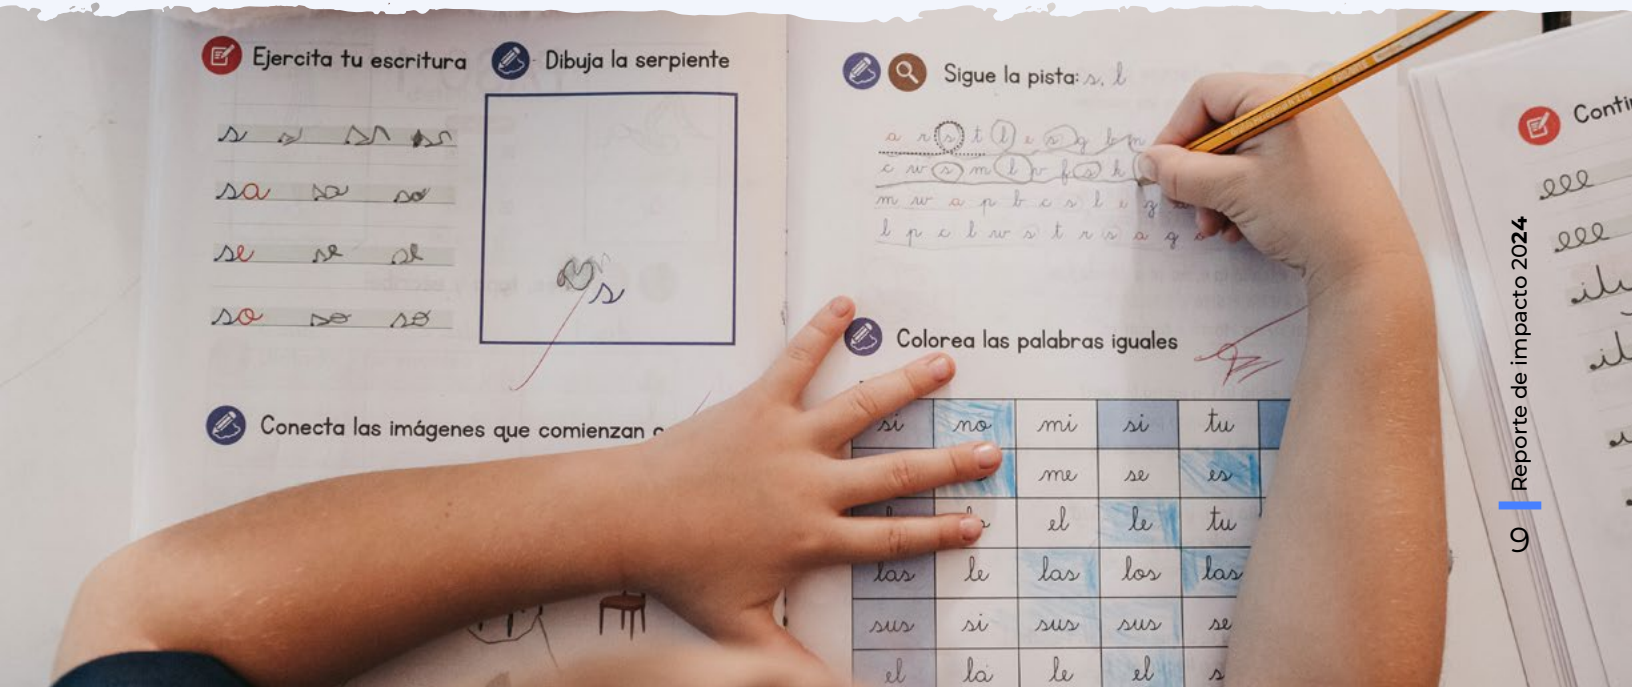 Ejercita tu escritura
s s
sa sa so
se se se
so so so
Dibuja la serpiente
s
Conecta las imágenes que comienzan
Sigue la pista: s, l
a r s t l e s g b m
c w s m l v f s h
m w a p b c s l e z a
l p c l w s t r s a g
Colorea las palabras iguales
si no mi si tu
me se es
el le tu
las le las los las
sus si sus sus se
el la le el s
lll
lll
Reporte de impacto 2024
9